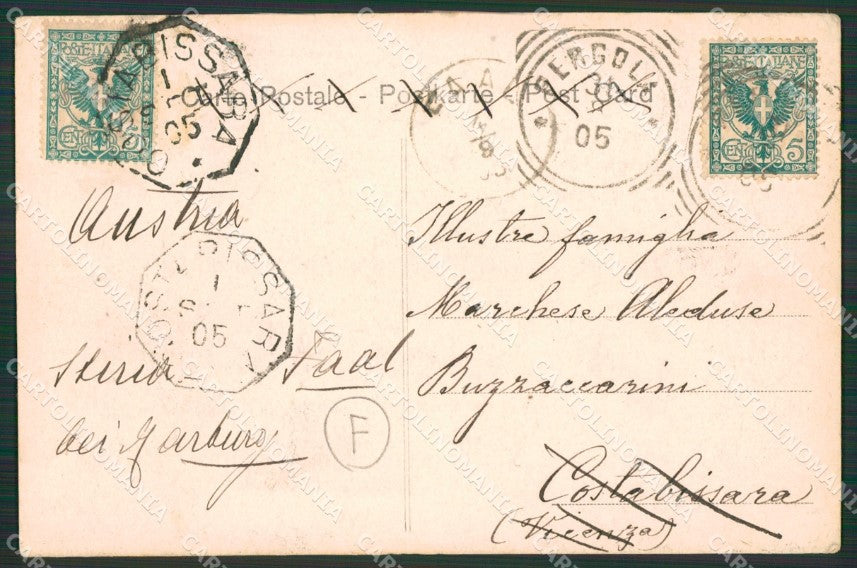 POSTE ITALIANE
CENT. 5
COSTABISSARA
1
SET
05
Carte Postale - Postkarte - Post Card
PERGOLA
31
8
05
POSTE ITALIANE
CENT. 5
Austria
Illustre famiglia
Marchese Aleduse
Buzzaccarini
COSTABISSARA
1
SET
05
Steria Faal
bei Marburg
F
Costabissara
(Vicenza)